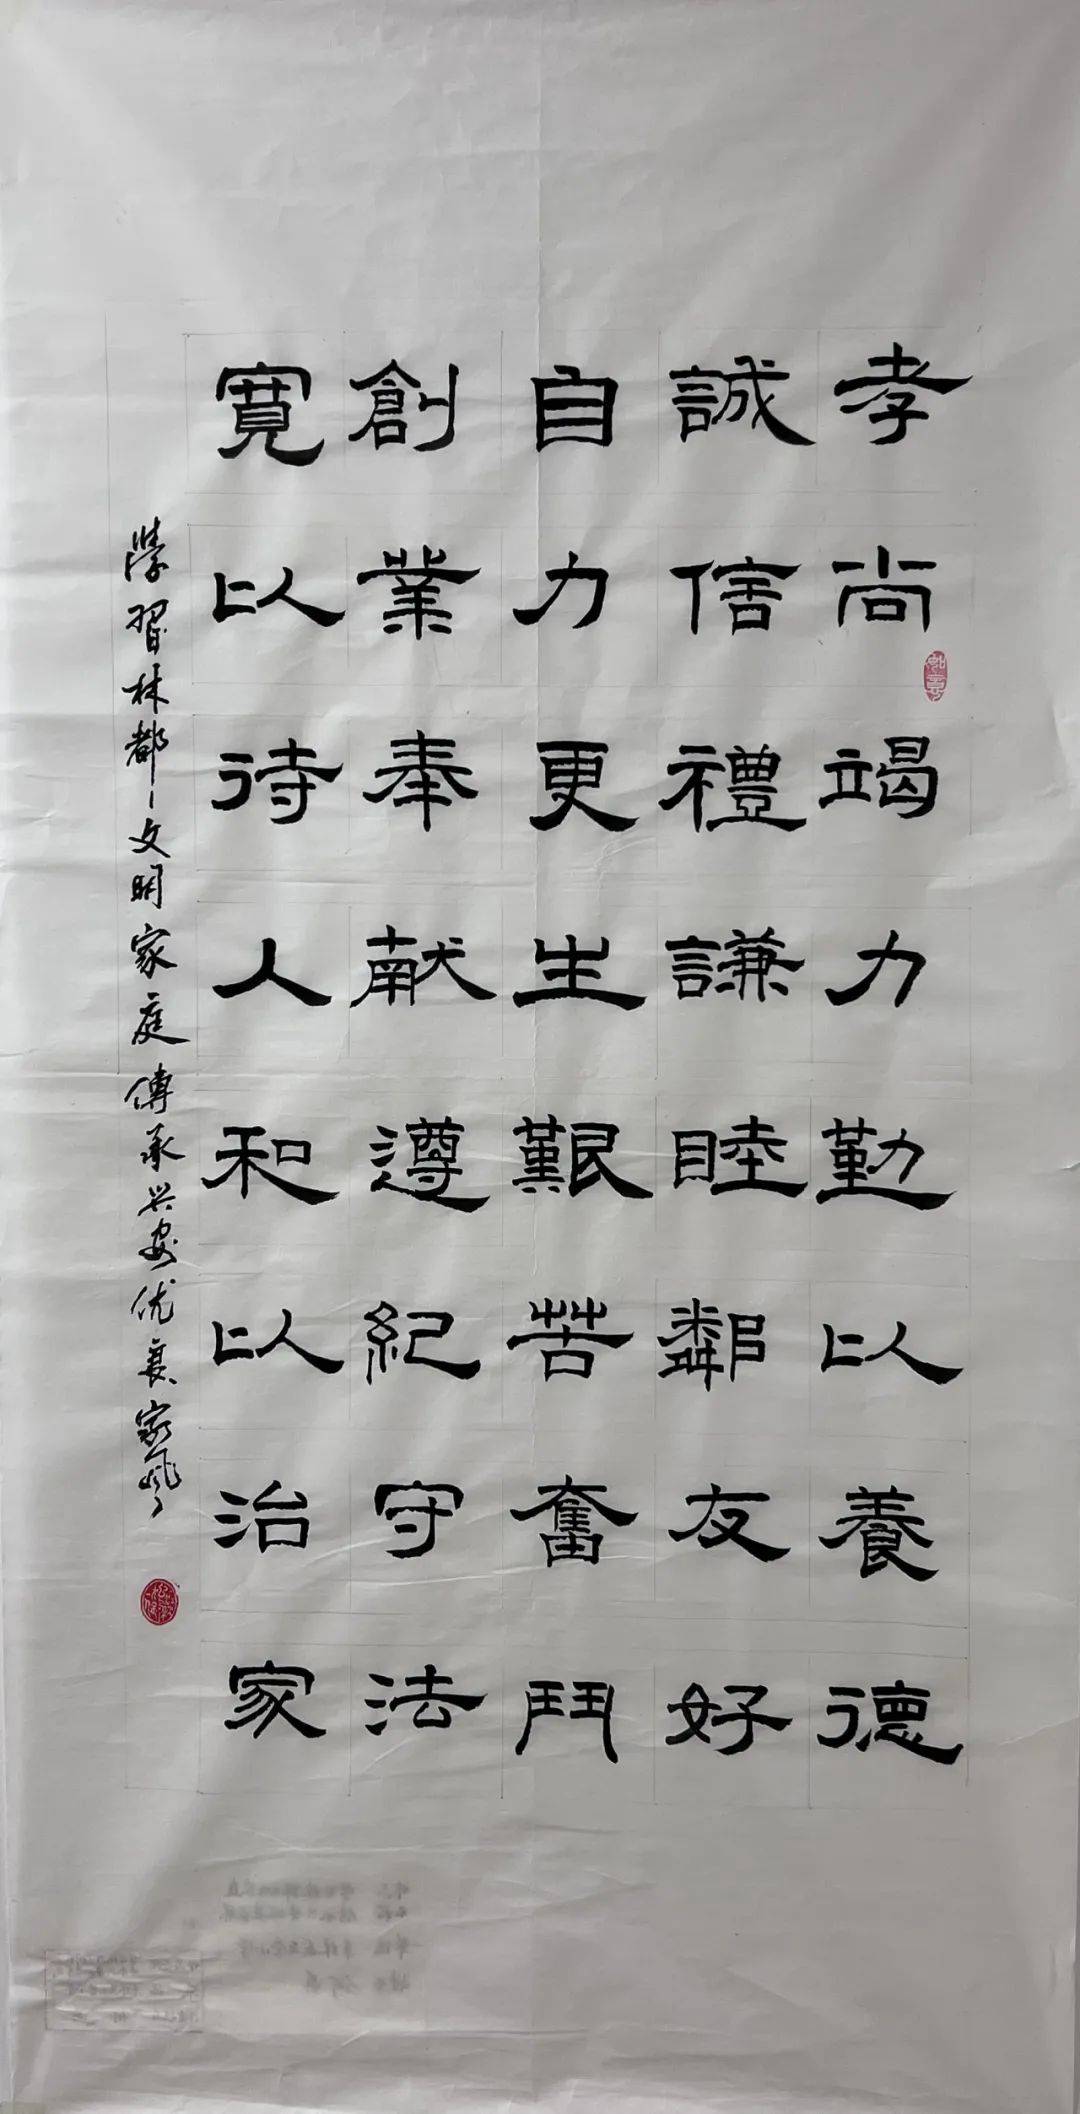 孝尚竭力勤以養德
誠信禮謙睦鄰友好
自力更生艱苦奮鬥
創業奉献遵紀守法
寬以待人和以治家
學習林都-文明家庭傳承兴安优良家風